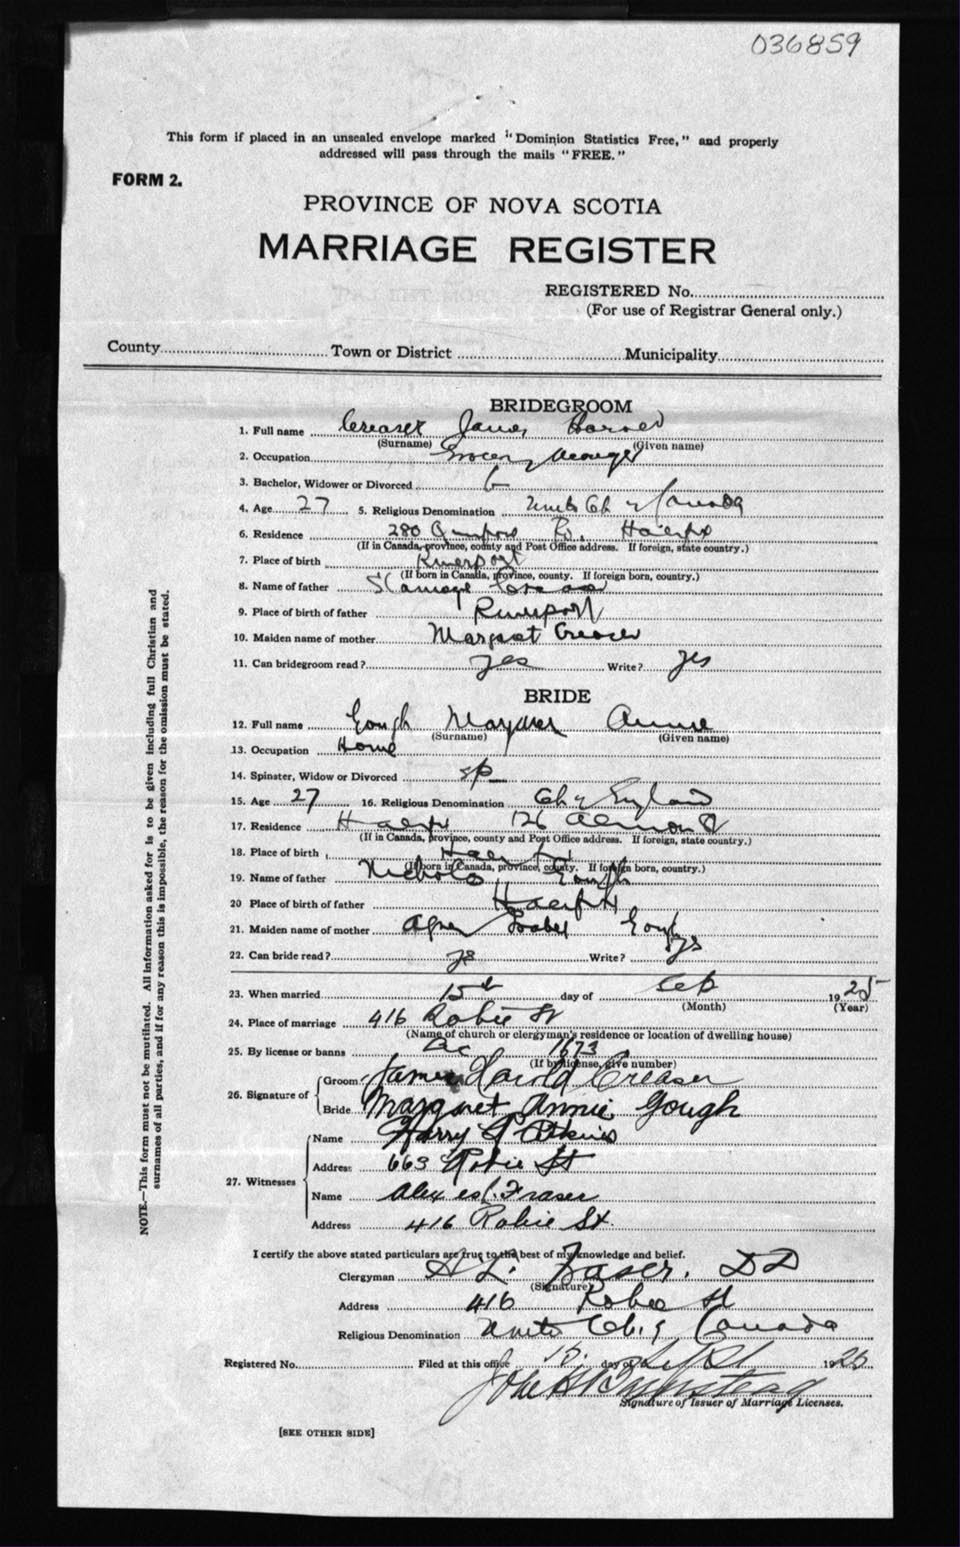 036859
This form if placed in an unsealed envelope marked "Dominion Statistics Free," and properly
addressed will pass through the mails "FREE."
FORM 2.
PROVINCE OF NOVA SCOTIA
MARRIAGE REGISTER
REGISTERED No.
(For use of Registrar General only.)
County Town or District Municipality
BRIDEGROOM
1. Full name Creaser James Harold
(Surname) (Given name)
2. Occupation Grocery Manager
3. Bachelor, Widower or Divorced B
4. Age 27 5. Religious Denomination Unit Ch of Canada
6. Residence 280 Quinpool Rd. Halifax
(If in Canada, province, county and Post Office address. If foreign, state country.)
7. Place of birth Riverport
(If born in Canada, province, county. If foreign born, country.)
8. Name of father Creaser
9. Place of birth of father Riverport
10. Maiden name of mother Margaret Creaser
11. Can bridegroom read? yes Write? yes
BRIDE
12. Full name Gough Margaret Annie
(Surname) (Given name)
13. Occupation Home
14. Spinster, Widow or Divorced sp
15. Age 27 16. Religious Denomination Ch of England
17. Residence Halifax 126 Almon St
(If in Canada, province, county and Post Office address. If foreign, state country.)
18. Place of birth Halifax
(If born in Canada, province, county. If foreign born, country.)
19. Name of father Nicholas Gough
20 Place of birth of father Halifax
21. Maiden name of mother Agnes Isabel Gough
22. Can bride read? yes Write? yes
23. When married 15th day of Sep 1925
(Month) (Year)
24. Place of marriage 416 Robie St
(Name of church or clergyman's residence or location of dwelling house)
25. By license or banns Lic 1673
(If by license, give number)
26. Signature of
Groom James Harold Creaser
Bride Margaret Annie Gough
27. Witnesses
Name Harry Atkins
Address 663 Robie St
Name Alex Fraser
Address 416 Robie St.
I certify the above stated particulars are true to the best of my knowledge and belief.
Clergyman Fraser, DD
(Signature)
Address 416 Robie St
Religious Denomination United Ch of Canada
Registered No. Filed at this office 15. day of Sept 1925
John
Signature of Issuer of Marriage Licenses.
[SEE OTHER SIDE]
NOTE.—This form must not be mutilated. All information asked for is to be given including full Christian and
surnames of all parties, and if for any reason this is impossible, the reason for the omission must be stated.